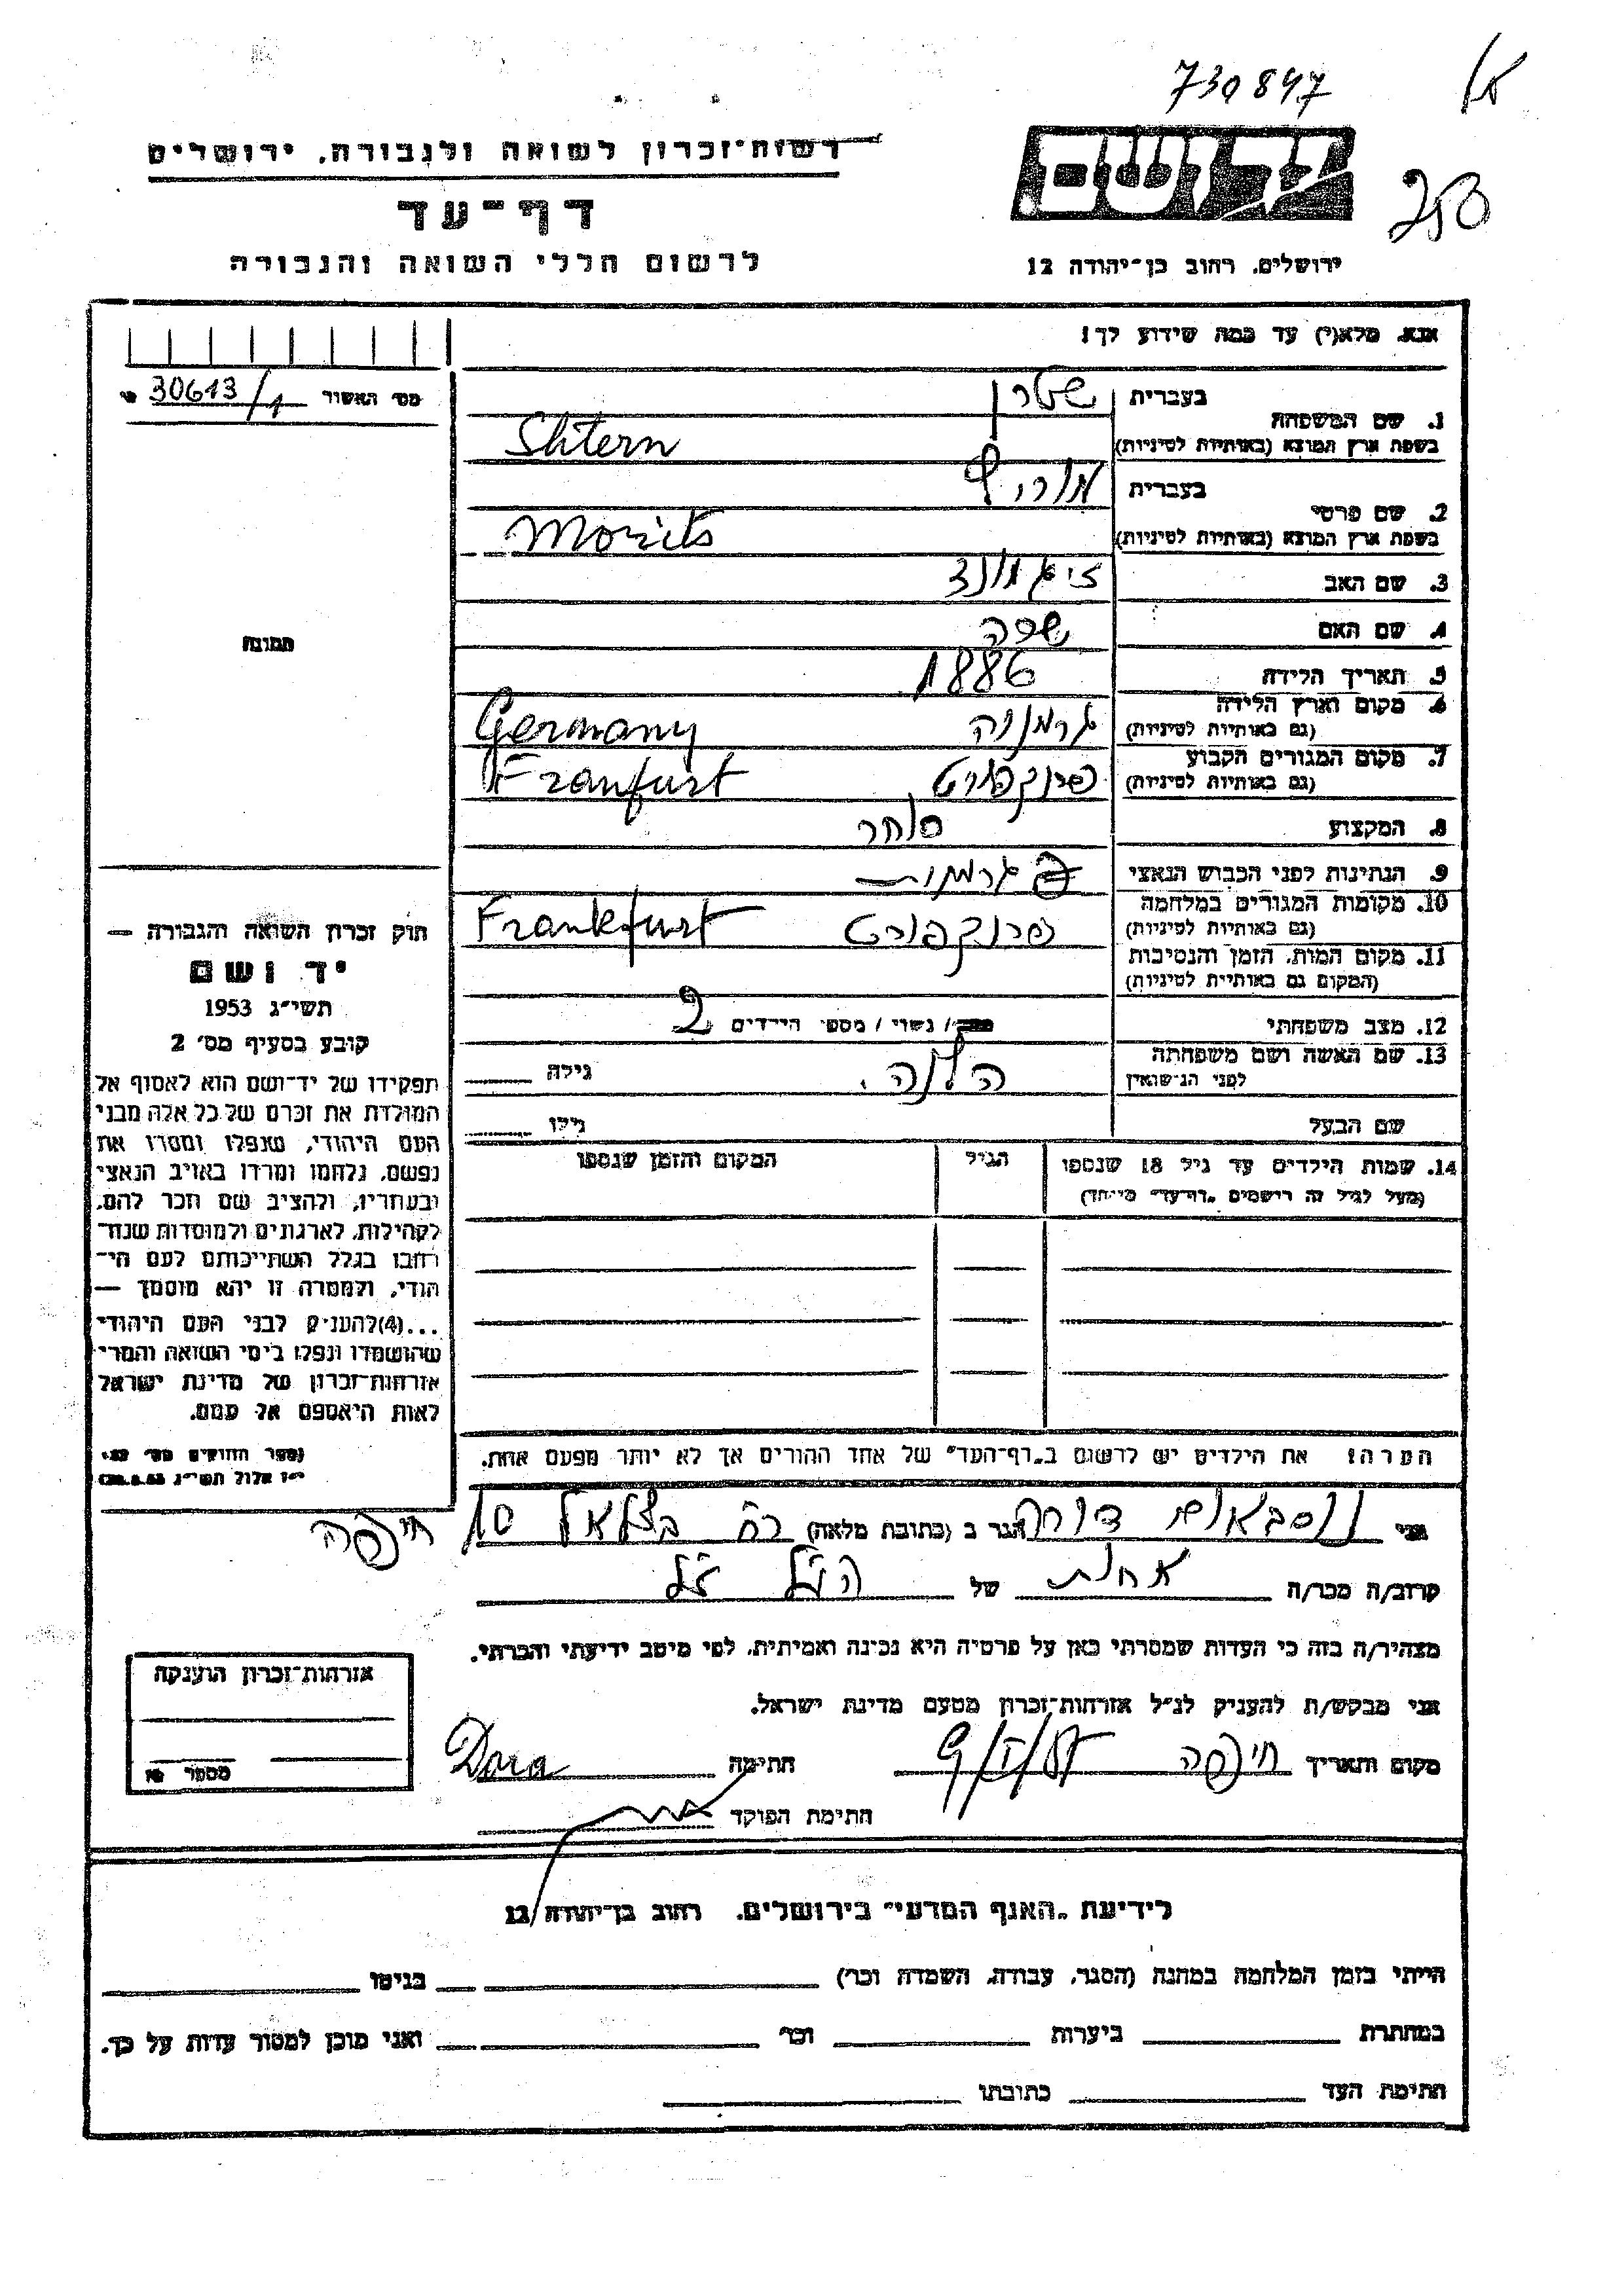 730847
רשות־זכרון לשואה ולגבורה, ירושלים
יד ושם
250
דף־עד
לרשום חללי השואה והגבורה
ירושלים, רחוב בן־יהודה 12
אנא, מלא(י) עד כמה שידוע לך!
מס׳ האשור 30613/1
בעברית שטרן
1. שם המשפחה
בשפת ארץ המוצא (באותיות לטיניות) Shtern
בעברית מוריץ
2. שם פרטי
בשפת ארץ המוצא (באותיות לטיניות) Morits
3. שם האב זיגמונד
4. שם האם
תמונה
5. תאריך הלידה 1886
6. מקום וארץ הלידה גרמניה Germany
(גם באותיות לטיניות)
7. מקום המגורים הקבוע פרנקפורט Franfurt
(גם באותיות לטיניות)
8. המקצוע סוחר
9. הנתינות לפני הכבוש הנאצי גרמנית
10. מקומות המגורים במלחמה פרנקפורט Frankfurt
(גם באותיות לטיניות)
11. מקום המות, הזמן והנסיבות
(המקום גם באותיות לטיניות)
12. מצב משפחתי / נשוי / מספר הילדים 2
13. שם האשה ושם משפחתה הלנה. גילה
לפני הנישואין
שם הבעל גילו
14. שמות הילדים עד גיל 18 שנספו הגיל המקום והזמן שנספו
(מעל לגיל זה רישמים „דף־עד״ מיוחד)
חוק זכרון השואה והגבורה —
יד ושם
תשי״ג 1953
קובע בסעיף מס׳ 2
תפקידו של יד־ושם הוא לאסוף אל
המולדת את זכרם של כל אלה מבני
העם היהודי, שנפלו ומסרו את
נפשם, נלחמו ומרדו באויב הנאצי
ובעוזריו, ולהציב שם וזכר להם,
לקהילות, לארגונים ולמוסדות שנח־
רבו בגלל השתייכותם לעם הי־
הודי, ולמטרה זו יהא מוסמך —
...(4) להעניק לבני העם היהודי
שהושמדו ונפלו בימי השואה והמרי
אזרחות־זכרון של מדינת ישראל
לאות היאספם אל עמם.
(ספר החוקים מס׳ 132,
י״ז אלול תשי״ג 28.8.53)
הערה! את הילדים יש לרשום ב„דף־העד״ של אחד ההורים אך לא יותר מפעם אחת.
אני נוסבאום דורה הגר ב (כתובת מלאה) רח׳ בצלאל 10 חיפה
קרוב/ה מכר/ה אחות של הנ״ל ז״ל
מצהיר/ה בזה כי העדות שמסרתי כאן על פרטיה היא נכונה ואמיתית, לפי מיטב ידיעתי והכרתי.
אני מבקש/ת להעניק לנ״ל אזרחות־זכרון מטעם מדינת ישראל.
מקום ותאריך חיפה 9/I/57 חתימה Dora
חתימת הפוקד
אזרחות־זכרון הוענקה
מספר
לידיעת „האגף המדעי״ בירושלים, רחוב בן־יהודה 12
הייתי בזמן המלחמה במחנה (הסגר, עבודה, השמדה וכו׳) בגיטו
במחתרת ביערות וכו׳ ואני מוכן למסור עדות על כך.
חתימת העד כתובתו